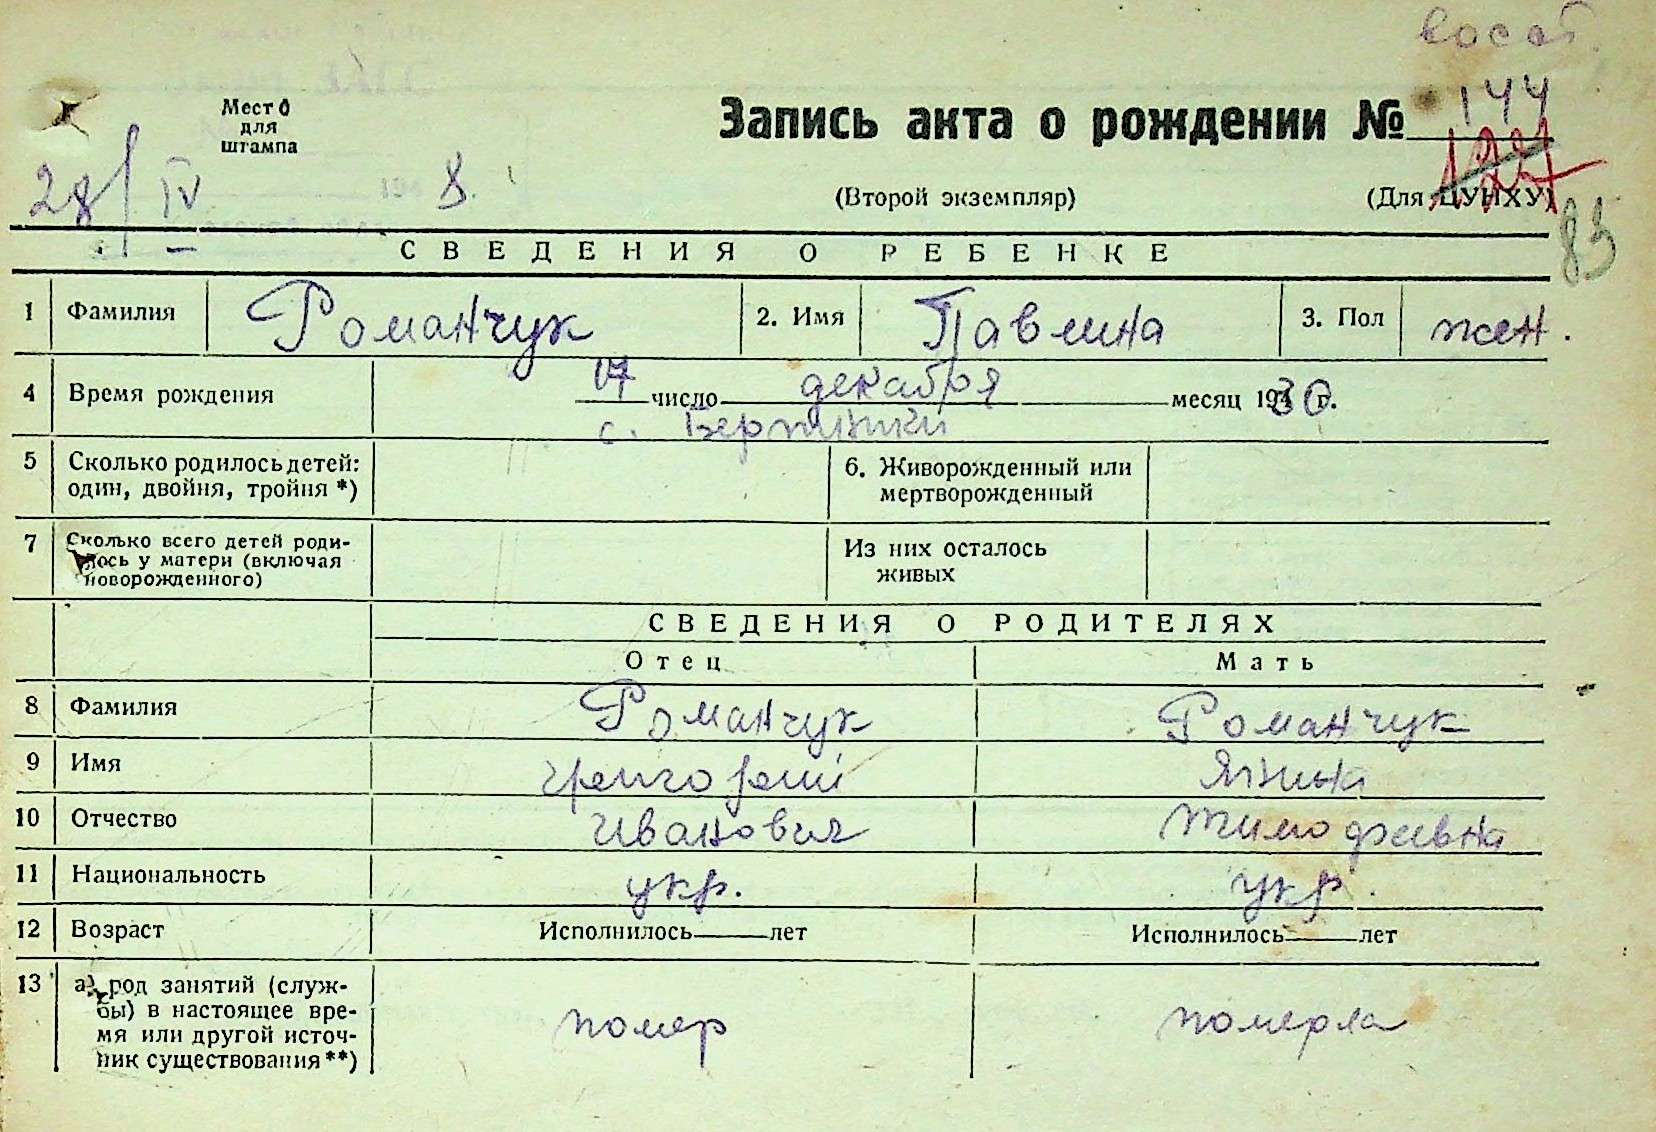 восст.
Место для штампа
Запись акта о рождении № 144
127
28/IV 194 8.
(Второй экземпляр) (Для ЦУНХУ)
83
СВЕДЕНИЯ О РЕБЕНКЕ
1 Фамилия Романчук 2. Имя Павлина 3. Пол жен.
4 Время рождения 17 число декабря месяц 1930 г.
с.
5 Сколько родилось детей: один, двойня, тройня *) 6. Живорожденный или мертворожденный
7 Сколько всего детей родилось у матери (включая новорожденного) Из них осталось живых
СВЕДЕНИЯ О РОДИТЕЛЯХ
Отец Мать
8 Фамилия Романчук Романчук
9 Имя
10 Отчество Иванович Тимофіевна
11 Национальность укр. укр.
12 Возраст Исполнилось лет Исполнилось лет
13 а) род занятий (службы) в настоящее время или другой источник существования **) помер померла